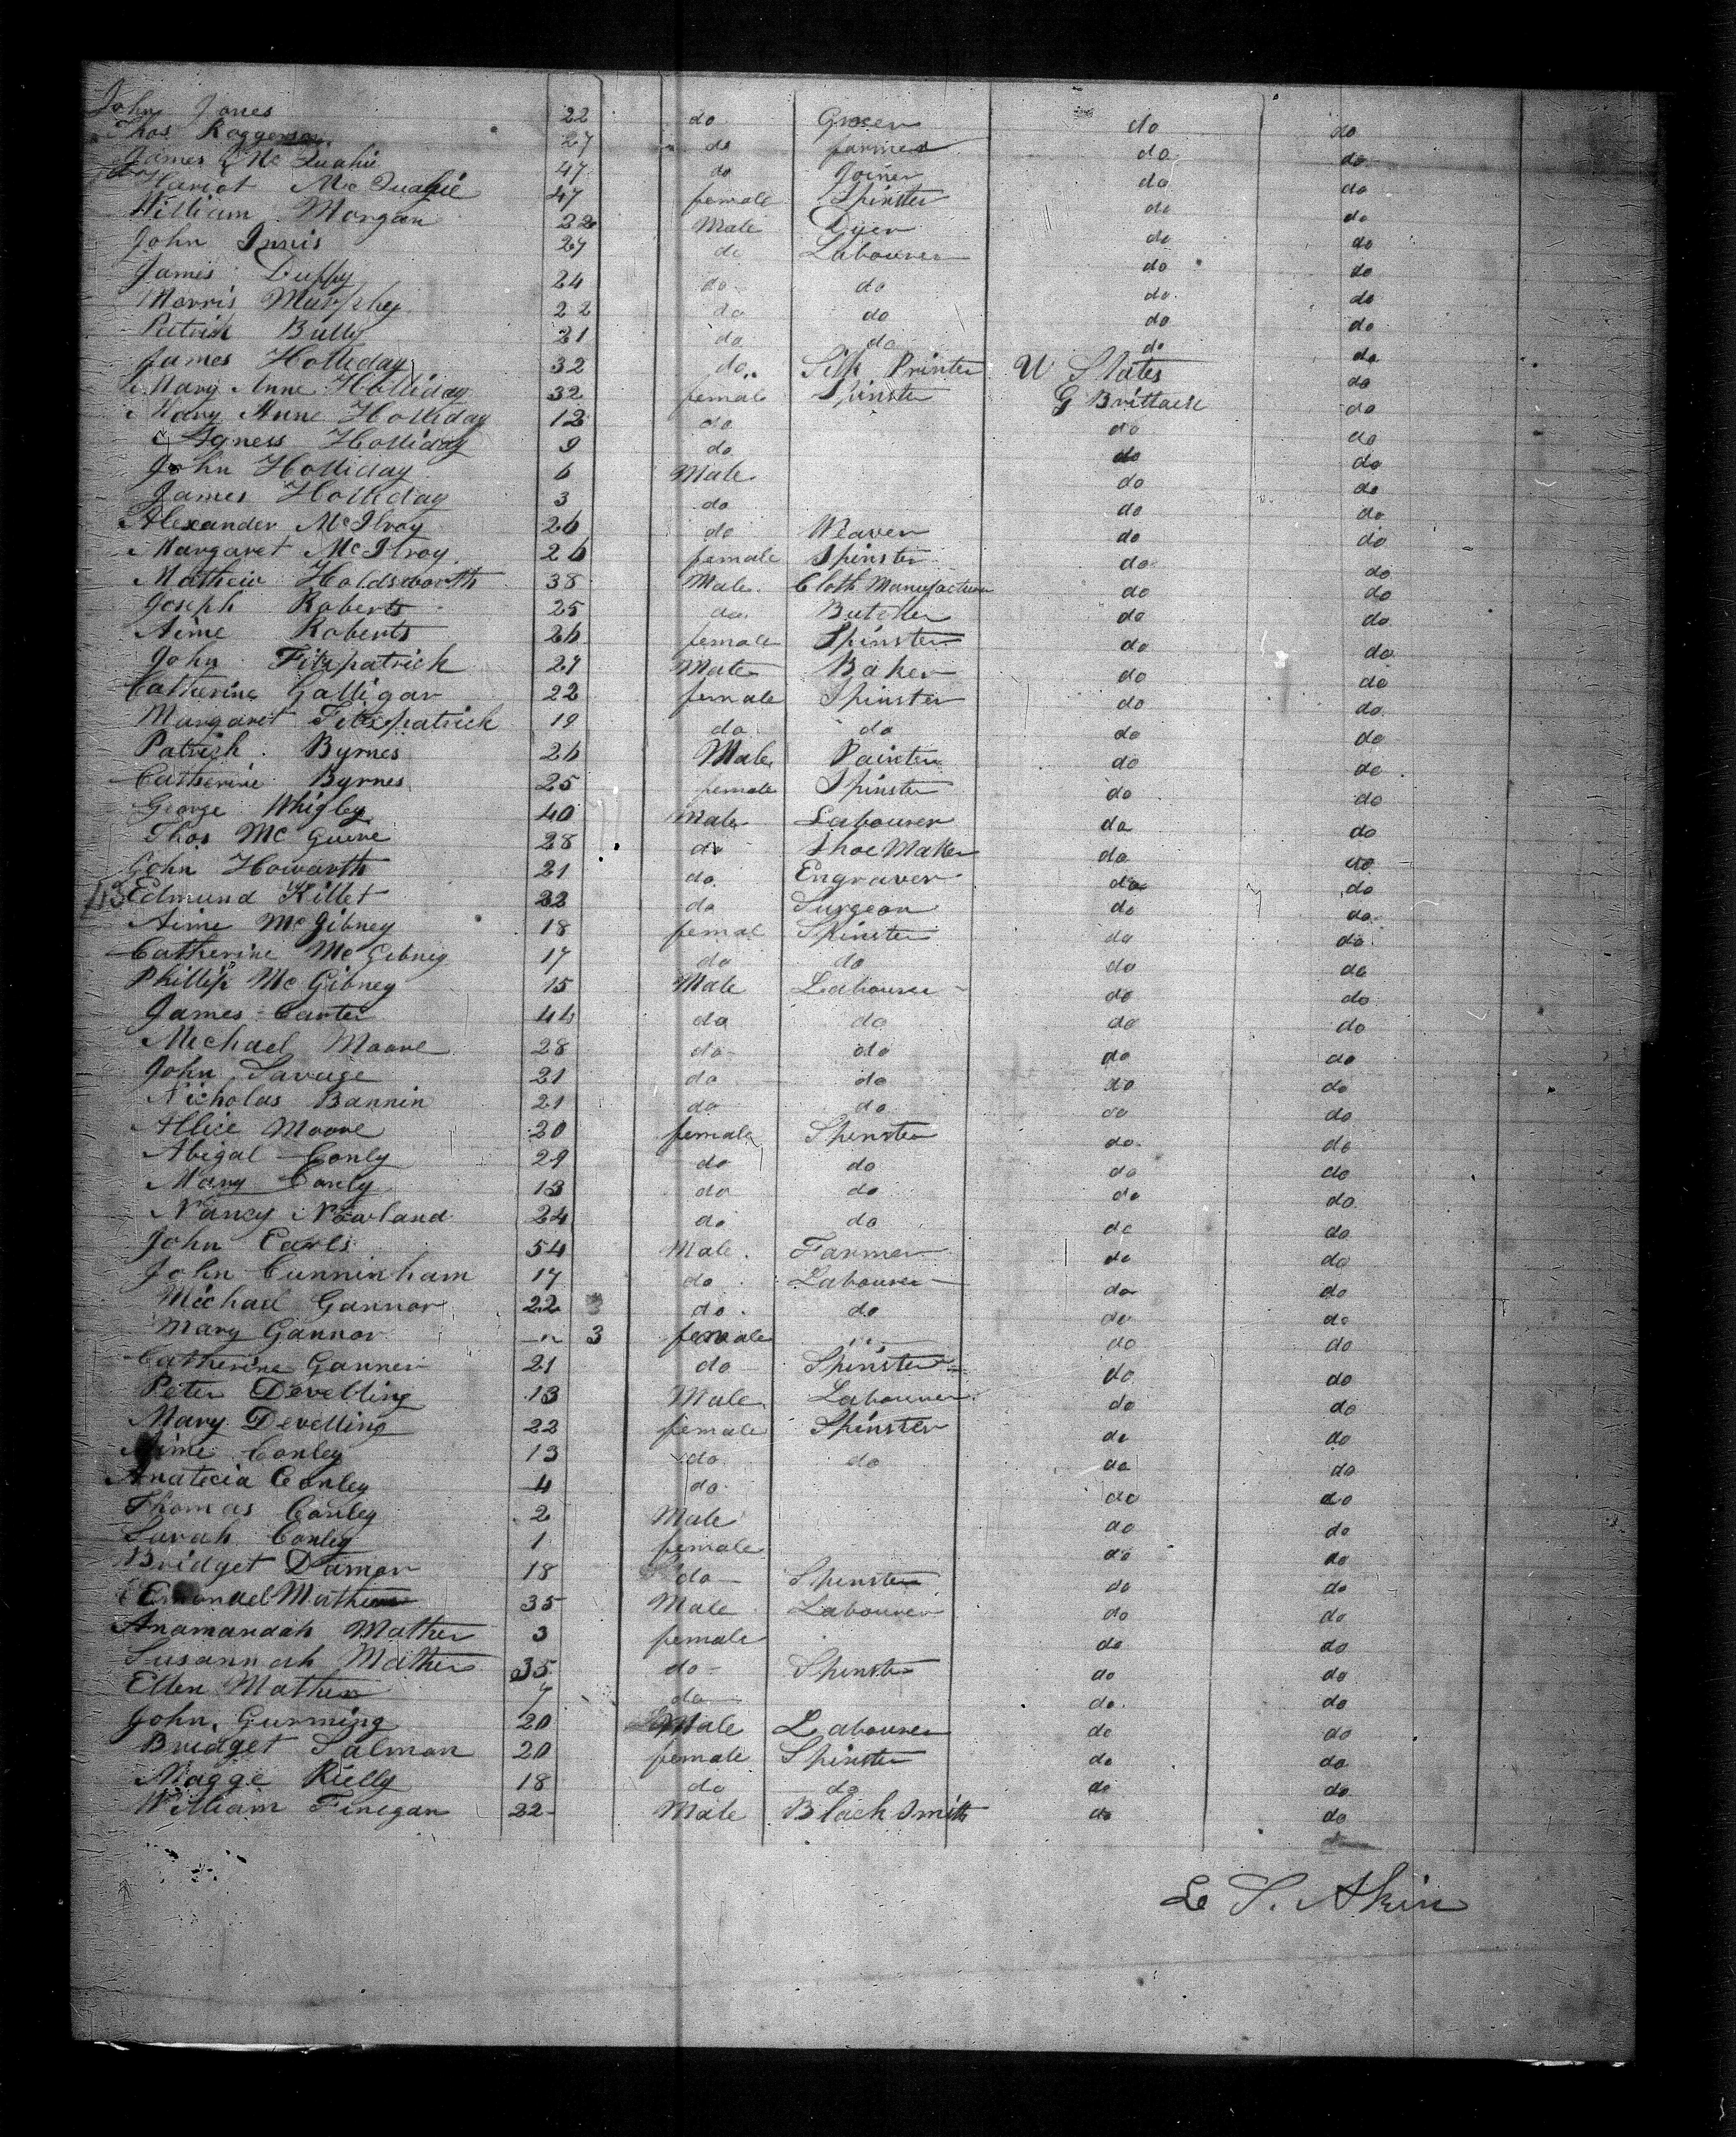 John Jones 22 do Grocer do do
Thos Roggerson 27 do farmer do do
James Mc Quahie 47 do Joiner do do
Hariot Mc Quahie 47 female Spinster do do
William Morgan 22 Male Dyer do do
John Innis 27 do Labourer do do
James Duffy 24 do do do do
Morris Murphey 22 do do do do
Patrick Bully 21 do do do do
James Holliday 32 do Silk Printer U States do
Mary Anne Holliday 32 female Spinster G Brittain do
Mary Anne Holliday 12 do do do
Agness Holliday 9 do do do
John Holliday 6 Male do do
James Holliday 3 do do do
Alexander McIlroy 26 do Weaver do do
Margaret McIlroy 26 female Spinster do do
Mathew Holdsworth 38 Male Cloth Manufacturer do do
Joseph Roberts 25 do Butcher do do
Aime Roberts 26 female Spinster do do
John Fitzpatrick 27 Male Baker do do
Catherine Galligar 22 female Spinster do do
Margaret Fitzpatrick 19 do do do do
Patrick Byrnes 26 Male Painter do do
Catherine Byrnes 25 female Spinster do do
George Whigley 40 Male Labourer do do
Thos Mc Guire 28 do Shoe Maker do do
John Howarth 21 do Engraver do do
Edmund Killet 22 do Surgeon do do
Aime McGibney 18 femal Spinster do do
Catherine McGibney 17 do do do do
Phillip McGibney 15 Male Labourer do do
James Carter 44 do do do do
Michael Moore 28 do do do do
John Savage 21 do do do do
Nicholas Bannin 21 do do do do
Allice Moore 20 female Spinster do do
Abigal Conly 29 do do do do
Mary Conly 13 do do do do
Nancy Nowland 24 do do do do
John Earls 54 Male Farmer do do
John Cunninham 17 do Labourer do do
Michael Gannor 22 do do do do
Mary Gannor 3 female do do
Catherine Ganner 21 do Spinster do do
Peter Develling 13 Male Labourer do do
Mary Develling 22 female Spinster do do
Aime Conley 13 do do do do
Anatecia Conley 4 do do do
Thomas Conley 2 Male do do
Sarah Conley 1 female do do
Bridget Damor 18 do Spinster do do
Mather 35 Male Labourer do do
Anamandah Mather 3 female do do
Susannah Mather 35 do Spinster do do
Ellen Mather 7 do do do
John Gurming 20 Male Labourer do do
Bridget Salmon 20 female Spinster do do
Magge Rielly 18 do do do do
William Finegan 22 Male Black Smith do do
S. Akin